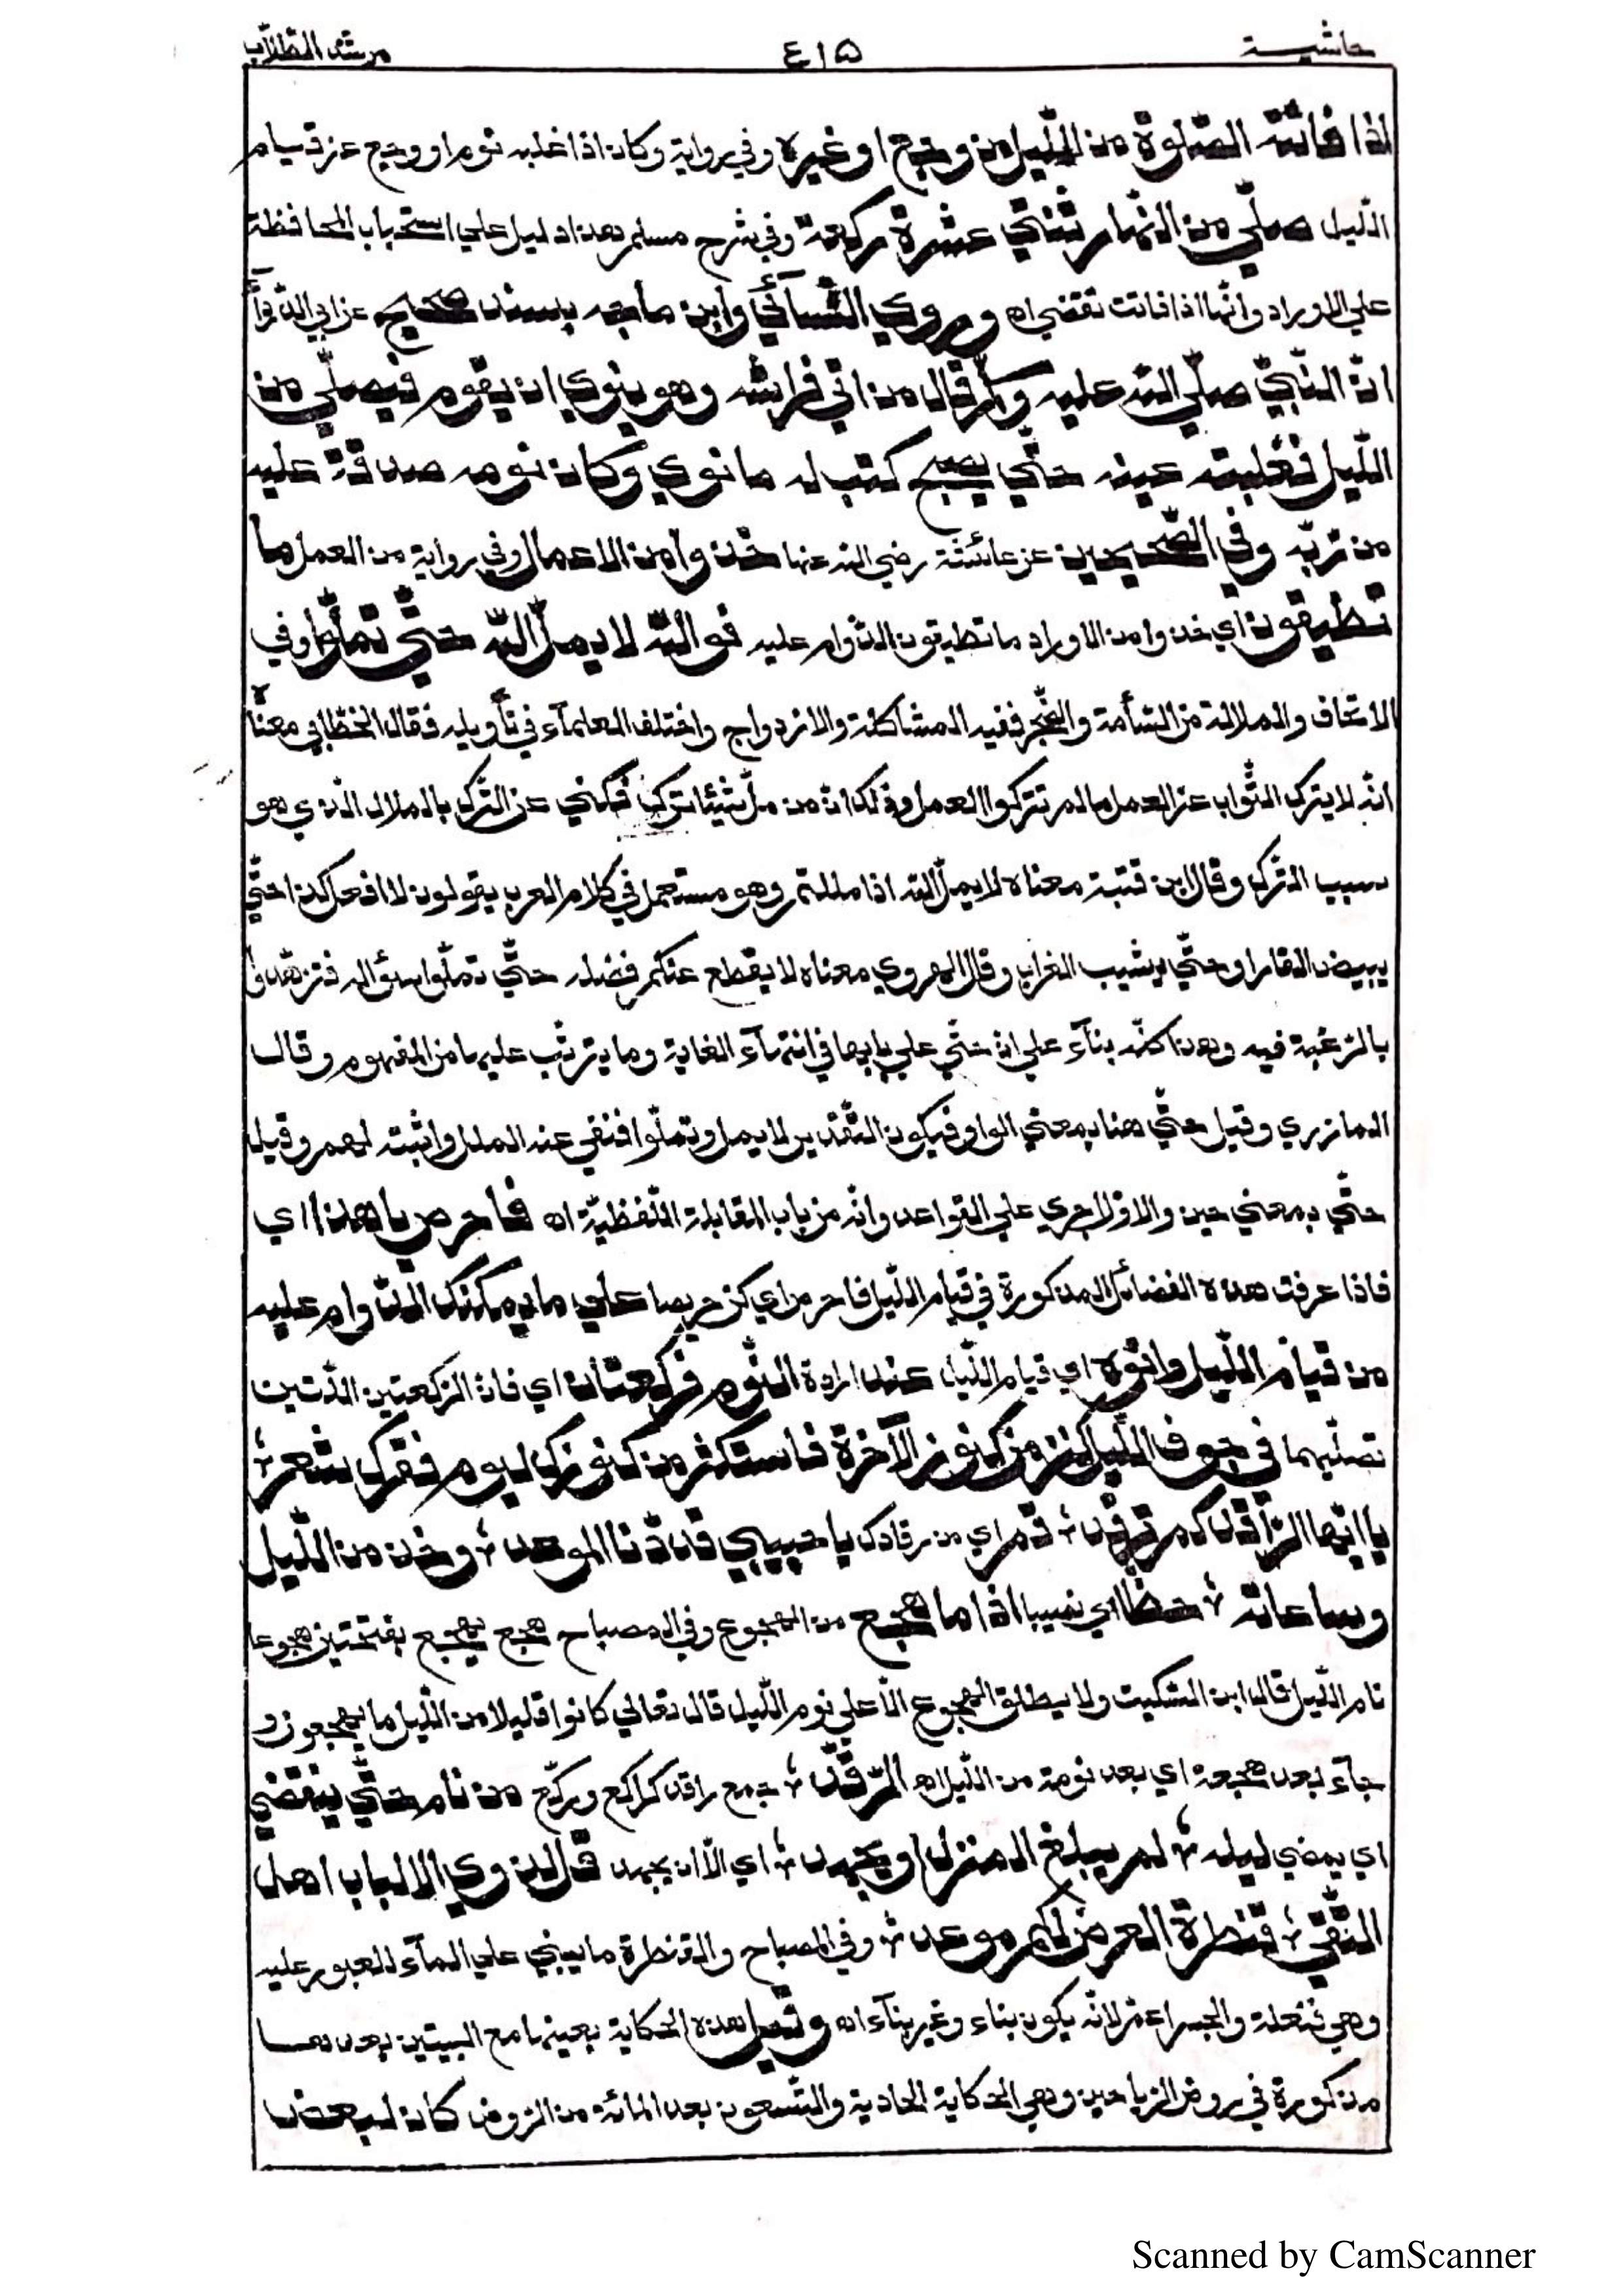 حاشية ٤١٥ مرشد الطلاب
اذا فاتته الصلوة من الليل من وجع او غيره وفي رواية وكان اذا غلبه نوم او وجع عن قيام
الليل صلي من النهار ثنتي عشرة ركعة وفي شرح مسلم هذا دليل علي استحباب المحافظة
علي الاوراد وانها اذا فاتت تقضي اه وروي النسآئي وابن ماجه بسند صحيح عن ابي الدردآء
ان النبي صلي الله عليه وسلم قال من اتي فراشه وهو ينوي ان يقوم فيصلي من
الليل فغلبته عينه حتي يصبح كتب له ما نوي وكان نومه صدقة عليه
من ربه وفي الصحيحين عن عائشة رضي الله عنها خذوا من الاعمال وفي رواية من العمل ما
تطيقون اي خذوا من الاوراد ما تطيقون الدوام عليه فوالله لا يمل الله حتي تملوا وفي
الاتحاف والملالة من السأمة والضجر ففيه المشاكلة والازدواج واختلف العلمآء في تأويله فقال الخطابي معناه
انه لا يترك الثواب عن العمل ما لم تتركوا العمل وذلك ان من مل شيئا تركه فكني عن الترك بالملال الذي هو
سبب الترك وقال ابن قتيبة معناه لا يمل الله اذا مللتم وهو مستعمل في كلام العرب يقولون لا افعل كذا حتي
يبيض القار او حتي يشيب الغراب وقال الهروي معناه لا يقطع عنكم فضله حتي تملوا سؤاله فتزهدوا
بالرغبة فيه وهذا كله بنآء علي ان حتي علي بابها في انتهآء الغاية وما يترتب عليها من المفهوم وقال
المازري وقيل حتي هنا بمعني الواو فيكون التقدير لا يمل وتملوا فنفي عنه الملل واثبته لهم وقيل
حتي بمعني حين والاول اجري علي القواعد وانه من باب المقابلة اللفظية اه فاحرص يا هذا اي
فاذا عرفت هذه الفضائل المذكورة في قيام الليل فاحرص اي كن حريصا علي ما يمكنك الدوام عليه
من قيام الليل وانوه اي قيام الليل عند ارادة النوم فركعتان اي فان الركعتين اللتين
تصليهما في جوف الليل كنز من كنوز الآخرة فاستكثر من كنوزك ليوم فقرك شعر ؛
يا ايها الراقد كم ترقد ؛ قم اي من رقادك يا حبيبي قد دنا الموعد ؛ وخذ من الليل
وساعاته ؛ حظا اي نصيبا اذا ما هجع من الهجوع وفي المصباح هجع يهجع بفتحتين هجوعا
نام الليل قال ابن السكيت ولا يطلق الهجوع الا علي نوم الليل قال تعالي كانوا قليلا من الليل ما يهجعون و
جآء بعد هجعة اي بعد نومة من الليل اه الرقد ؛ جمع راقد كراكع وركع من نام حتي ينقضي
اي يمضي ليله ؛ لم يبلغ المنزل او يجهد ؛ اي الا ان يجهد قل لذوي الالباب اهل
التقي ؛ قنطرة العرض لكم موعد ؛ وفي المصباح والقنطرة ما يبني علي المآء للعبور عليه
وهي فنعلة والجسر اعم لانه يكون بناء وغير بنآء اه وقيل هذه الحكاية بعينها مع البيتين بعدها
مذكورة في روض الرياحين وهي الحكاية الحادية والتسعون بعد المائة من الروض كان لبعض
Scanned by CamScanner